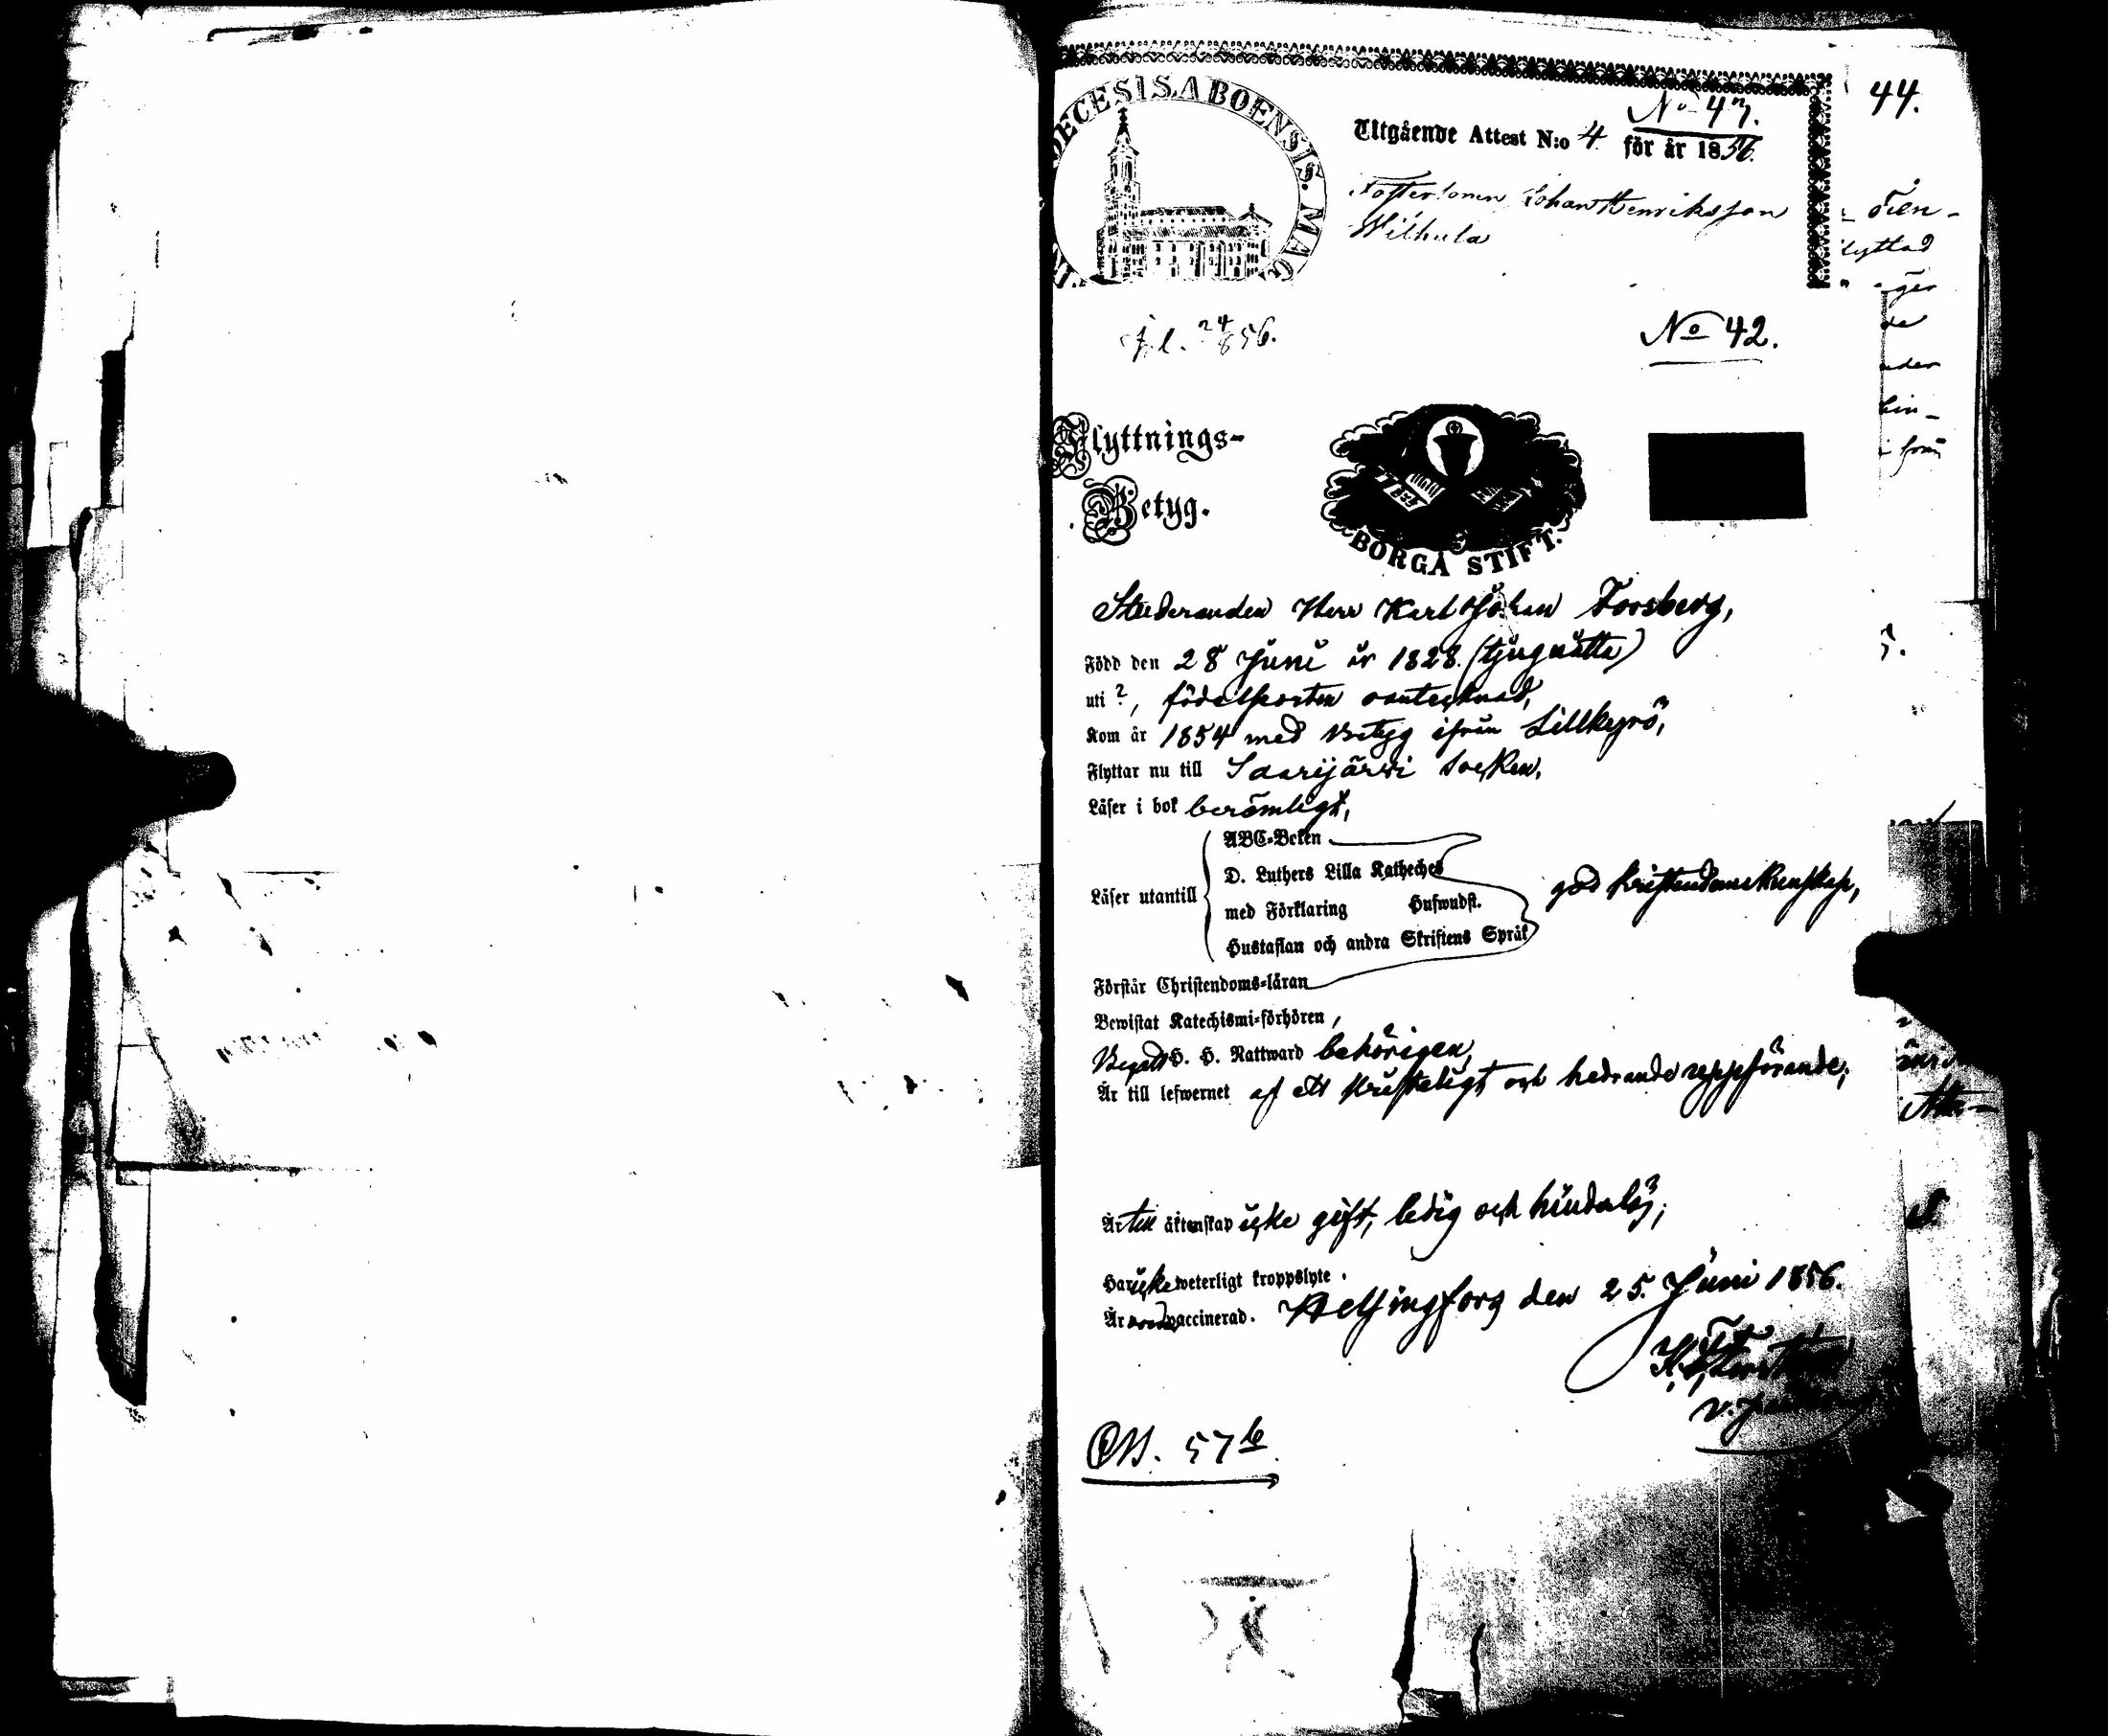 DECESIS ABOENSIS. MAG
44.
No 43.
Utgående Attest N:o 4. för år 1856.
Fostersonen Johan Henriksson
Wilhula
No 42.
Flyttnings-
Betyg.
BORGÅ STIFT.
Studeranden Herr Karl Johan Forsberg,
Född den 28 Juni år 1828. (tjuguåtta)
uti ?, födelseorten oantecknad,
Kom år 1854 med Betyg ifrån Lillkyrö,
Flyttar nu till Saarijärwi Socken.
Läser i bok berömligt,
Läser utantill
ABC-Boken
D. Luthers Lilla Katheches
med Förklaring Hufwudst.
Hustaflan och andra Skriftens Språk
god kristendomskunskap,
Förstår Christendoms-läran
Bewistat Katechismi-förhören,
Begått H. H. Nattward behörigen,
Är till lefwernet af ett kristeligt och hedrande uppförande;
Är till äktenskap icke gift, ledig och hinderlös;
Har icke weterligt kroppslyte.
Är vaccinerad. Helsingfors den 25. Juni 1856.
57